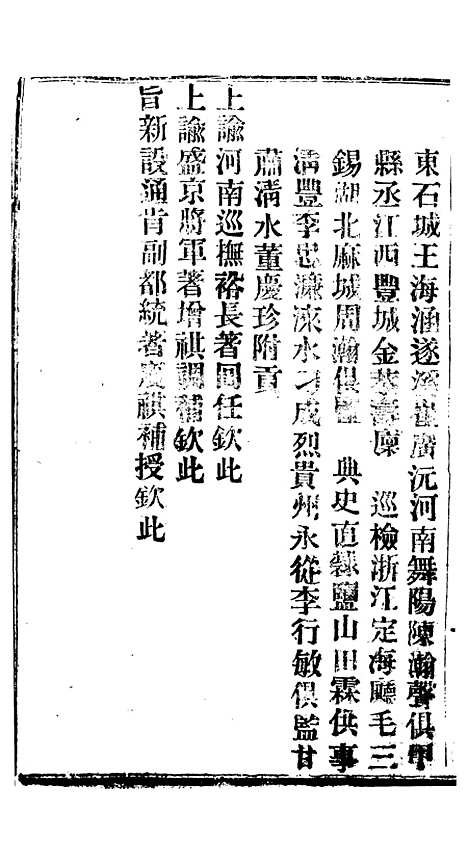 東石城王海涵遂溪崔廣沅河南舞陽陳瀚聲俱甲
縣丞江西豐城金基壽廩 巡檢浙江定海廳毛三
錫湖北麻城周瀚俱監 典史直隸鹽山田霖供事
清豐李忠濂淶水刁成烈貴州永從李行敏俱監甘
肅清水董慶珍附貢
上諭河南巡撫裕長著回任欽此
上諭盛京將軍著增祺調補欽此
旨新設通肯副都統著慶祺補授欽此